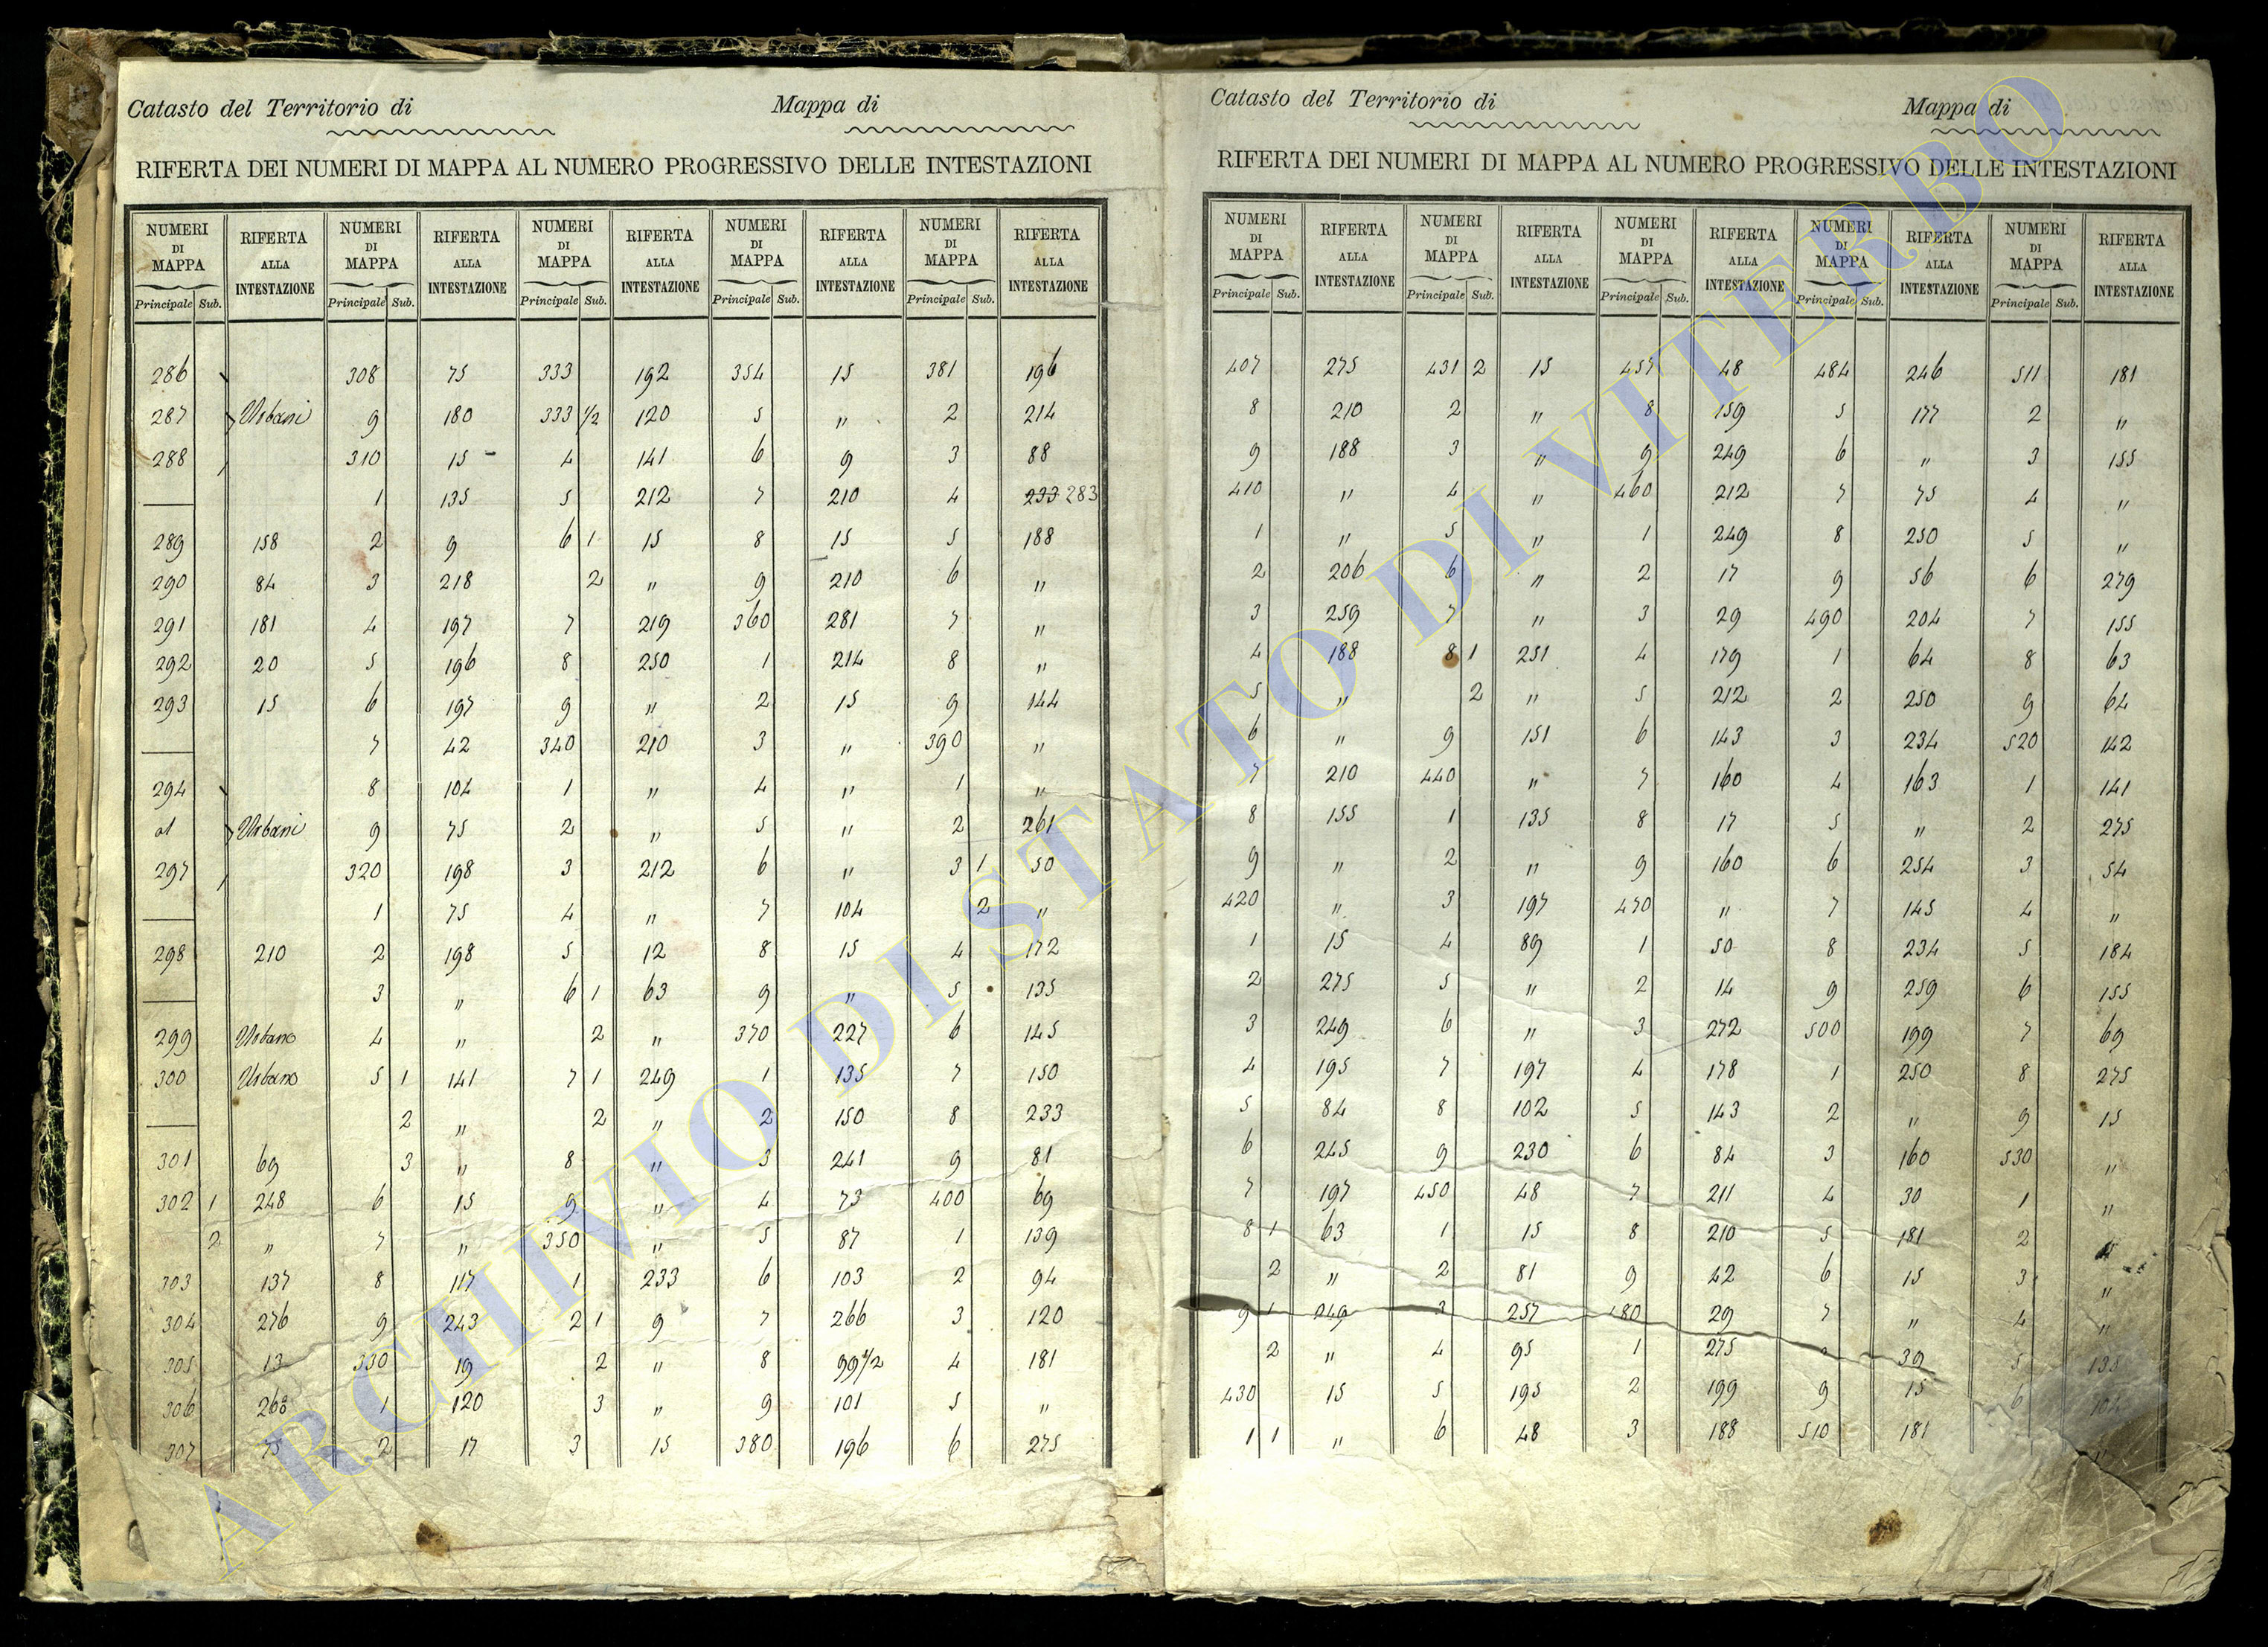 Catasto del Territorio di Mappa di
RIFERTA DEI NUMERI DI MAPPA AL NUMERO PROGRESSIVO DELLE INTESTAZIONI
NUMERI DI MAPPA RIFERTA ALLA INTESTAZIONE NUMERI DI MAPPA RIFERTA ALLA INTESTAZIONE NUMERI DI MAPPA RIFERTA ALLA INTESTAZIONE NUMERI DI MAPPA RIFERTA ALLA INTESTAZIONE NUMERI DI MAPPA RIFERTA ALLA INTESTAZIONE
Principale Sub. Principale Sub. Principale Sub. Principale Sub. Principale Sub.
286 308 75 333 192 354 15 381 196
287 Urbani 9 180 333 1/2 120 5 " 2 214
288 310 15 4 141 6 9 3 88
1 135 5 212 7 210 4 233 283
289 158 2 9 6 1 15 8 15 5 188
290 84 3 218 2 " 9 210 6 "
291 181 4 197 7 219 360 281 7 "
292 20 5 196 8 250 1 214 8 "
293 15 6 197 9 " 2 15 9 144
7 42 340 210 3 " 390 "
294 8 104 1 " 4 " 1 "
al Urbani 9 75 2 " 5 " 2 261
297 320 198 3 212 6 " 3 1 50
1 75 4 " 7 104 2 "
298 210 2 198 5 12 8 15 4 172
3 " 6 1 63 9 " 5 135
299 Urbano 4 " 2 " 370 227 6 145
300 Urbano 5 1 141 7 1 249 1 135 7 150
2 " 2 " 2 150 8 233
301 69 3 " 8 " 3 241 9 81
302 1 248 6 15 9 " 4 73 400 69
2 " 7 " 350 " 5 87 1 139
303 137 8 117 1 233 6 103 2 94
304 276 9 243 2 1 9 7 266 3 120
305 13 330 19 2 " 8 99 1/2 4 181
306 1 120 3 " 9 101 5 "
307 75 2 17 3 15 380 196 6 275
Catasto del Territorio di Mappa di
RIFERTA DEI NUMERI DI MAPPA AL NUMERO PROGRESSIVO DELLE INTESTAZIONI
NUMERI DI MAPPA RIFERTA ALLA INTESTAZIONE NUMERI DI MAPPA RIFERTA ALLA INTESTAZIONE NUMERI DI MAPPA RIFERTA ALLA INTESTAZIONE NUMERI DI MAPPA RIFERTA ALLA INTESTAZIONE NUMERI DI MAPPA RIFERTA ALLA INTESTAZIONE
Principale Sub. Principale Sub. Principale Sub. Principale Sub. Principale Sub.
407 275 431 2 15 457 48 484 246 511 181
8 210 2 " 8 159 5 177 2 "
9 188 3 " 9 249 6 " 3 155
410 " 4 " 460 212 7 75 4 "
1 " 5 " 1 249 8 250 5 "
2 206 6 " 2 17 9 56 6 279
3 259 7 " 3 29 490 204 7 155
4 188 8 1 251 4 179 1 64 8 63
5 " 2 " 5 212 2 250 9 64
6 " 9 151 6 143 3 234 520 142
7 210 440 " 7 160 4 163 1 141
8 155 1 135 8 17 5 " 2 275
9 " 2 " 9 160 6 254 3 54
420 " 3 197 470 " 7 145 4 "
1 15 4 89 1 50 8 234 5 184
2 275 5 " 2 14 9 259 6 155
3 249 6 " 3 272 500 199 7 69
4 195 7 197 4 178 1 250 8 275
5 84 8 102 5 143 2 " 9 15
6 245 9 230 6 84 3 160 530 "
7 197 450 48 7 211 4 30 1 "
8 1 63 1 15 8 210 5 181 2
2 " 2 81 9 42 6 15 3 "
9 1 249 3 257 480 29 7 " 4 "
2 " 4 95 1 275 39 5 135
430 15 5 195 2 199 9 15 6 104
1 1 " 6 48 3 188 510 181 "
ARCHIVIO DI STATO DI VITERBO